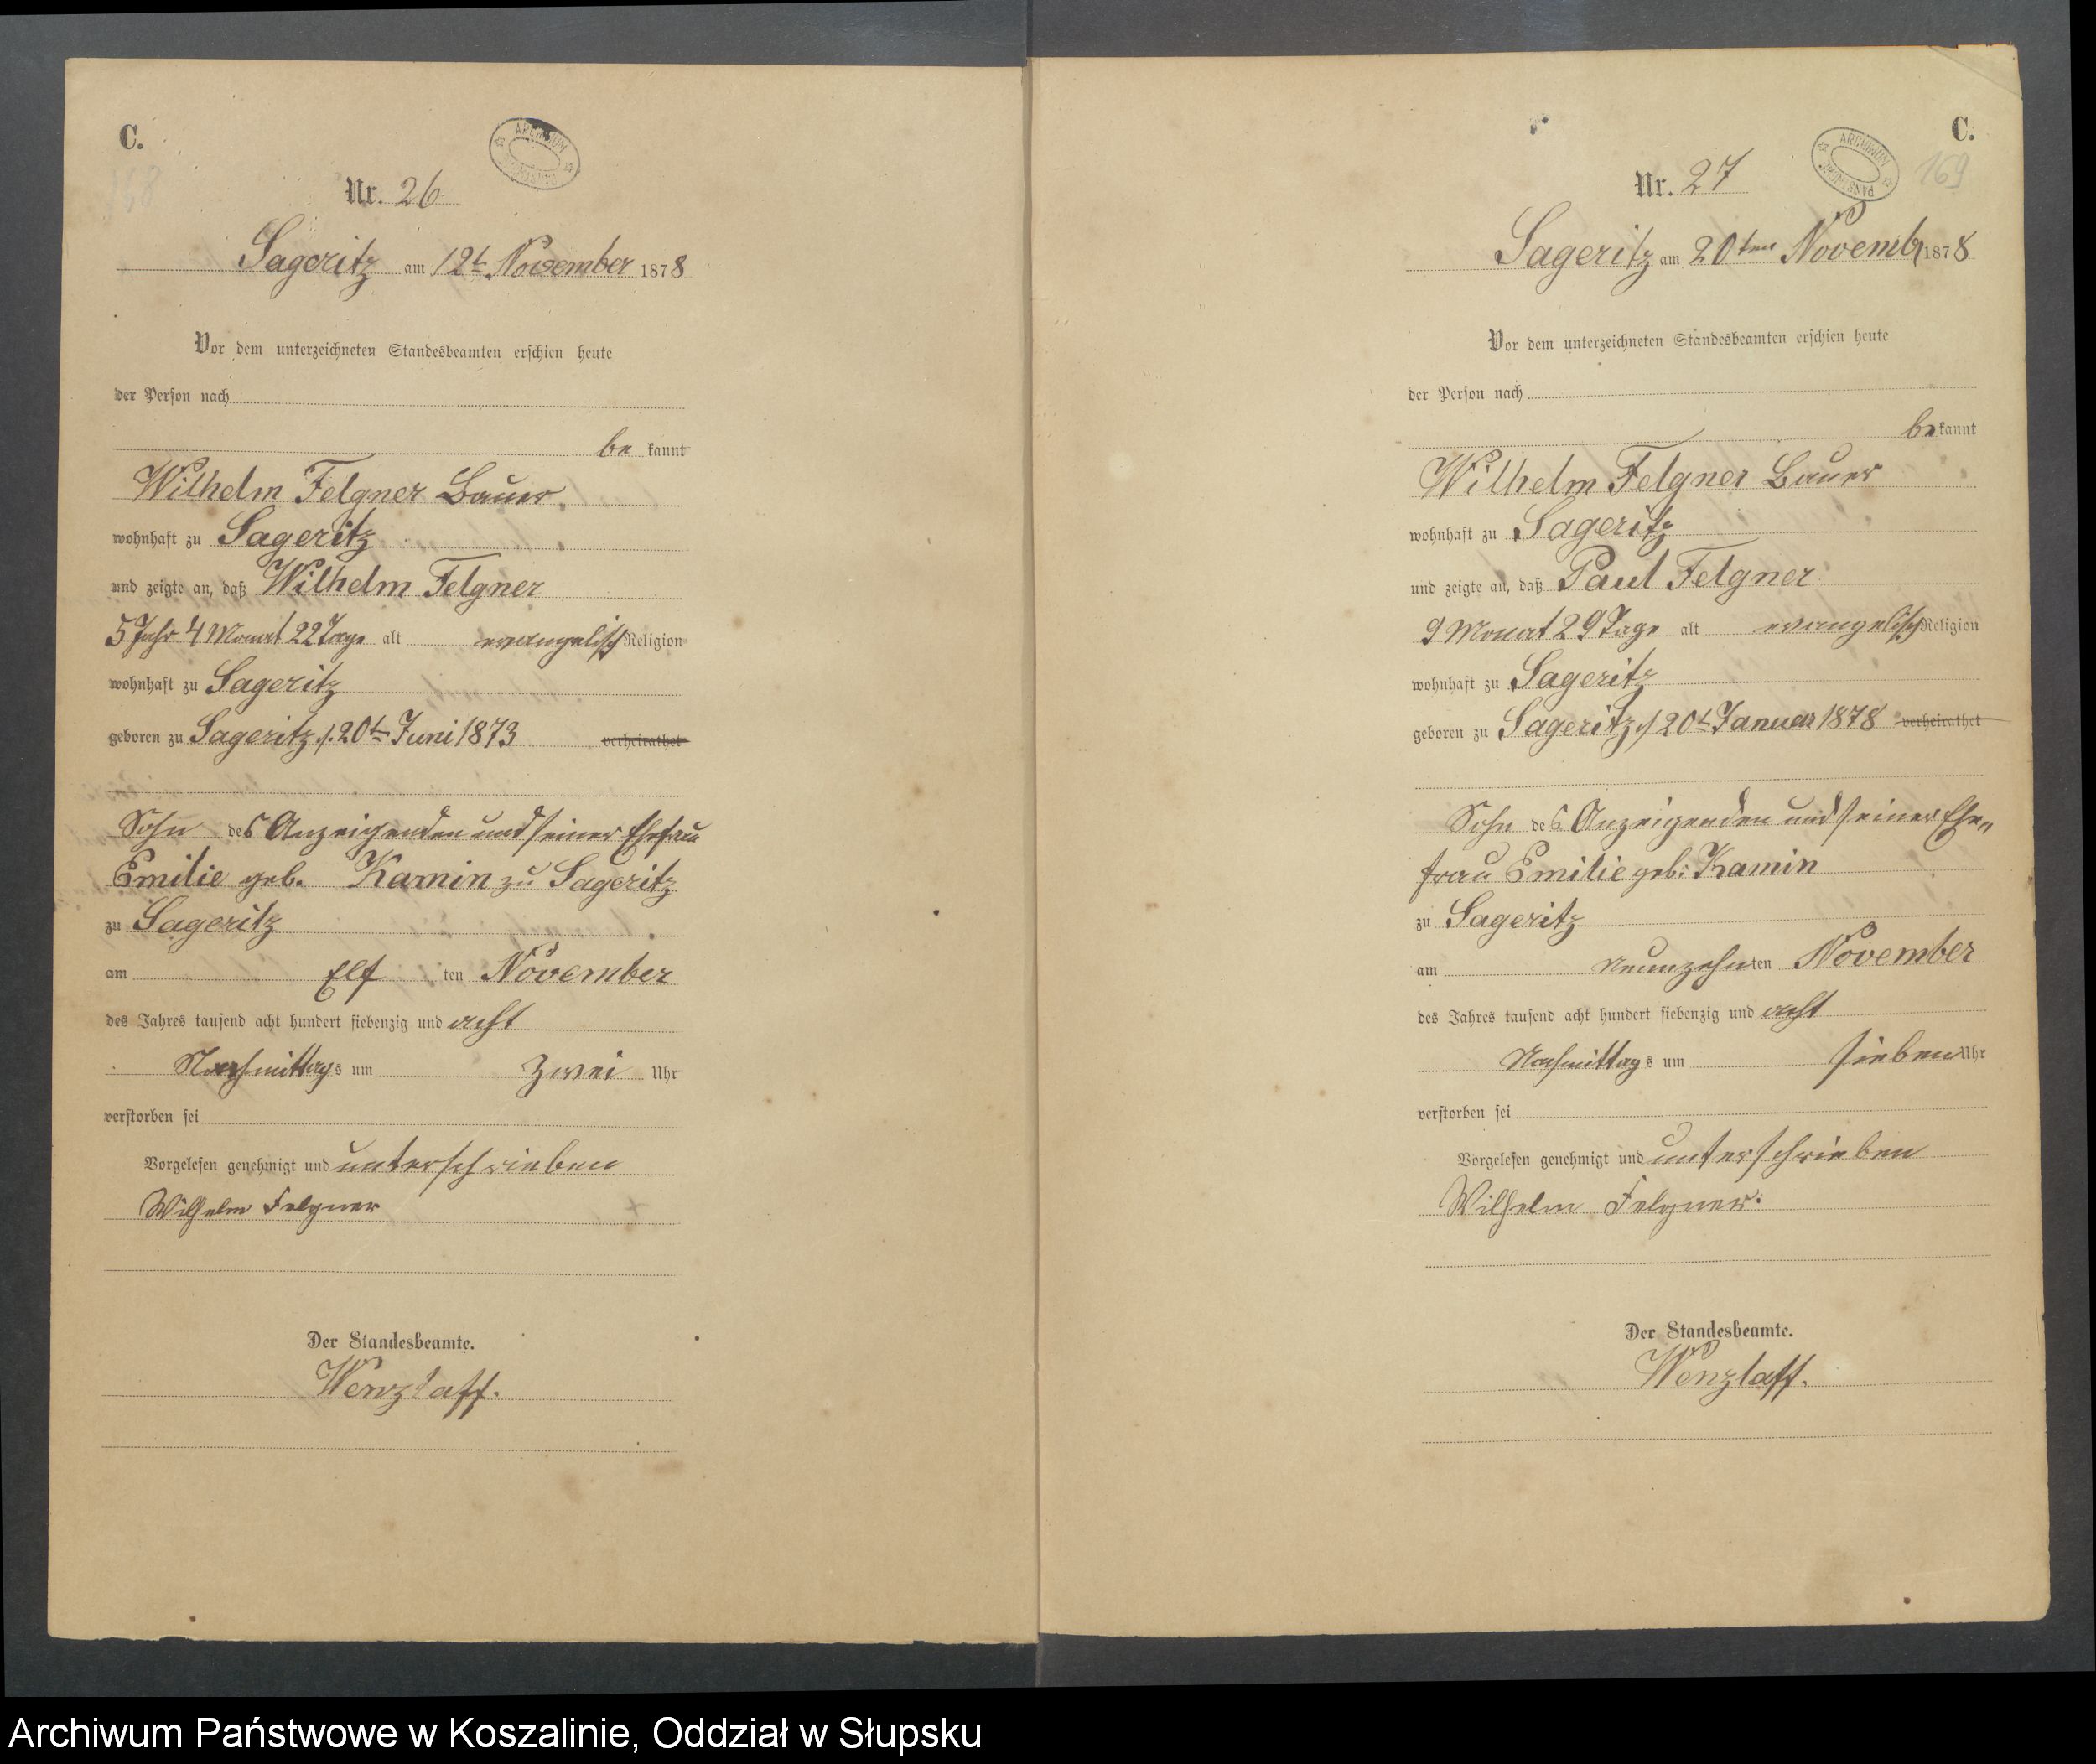 C.
168
ARCHIWUM
Nr. 26
Sageritz am 12t November 1878
Vor dem unterzeichneten Standesbeamten erschien heute
der Person nach
be kannt
Wilhelm Felgner Bauer
wohnhaft zu Sageritz
und zeigte an, daß Wilhelm Felgner
5 Jahr 4 Monat 22 Tage alt evangelisch Religion
wohnhaft zu Sageritz
geboren zu Sageritz d. 20t Juni 1873 verheirathet
Sohn des Anzeigenden und seiner Ehefrau
Emilie geb. Kamin zu Sageritz
zu Sageritz
am Elf ten November
des Jahres tausend acht hundert siebenzig und acht
Nachmittags um Zwei Uhr
verstorben sei
Vorgelesen genehmigt und unterschrieben
Wilhelm Felgner
Der Standesbeamte.
Wenzlaff.
C.
169
ARCHIWUM PAŃSTWOWE
Nr. 27
Sageritz am 20ten Novembr 1878
Vor dem unterzeichneten Standesbeamten erschien heute
der Person nach
bekannt
Wilhelm Felgner Bauer
wohnhaft zu Sageritz
und zeigte an, daß Paul Felgner
9 Monat 29 Tage alt evangelisch Religion
wohnhaft zu Sageritz
geboren zu Sageritz d 20t Januar 1878 verheirathet
Sohn des Anzeigenden und seiner Ehe„
frau Emilie geb: Kamin
zu Sageritz
am neunzehnten November
des Jahres tausend acht hundert siebenzig und acht
Nachmittags um sieben Uhr
verstorben sei
Vorgelesen genehmigt und unterschrieben
Wilhelm Felgner.
Der Standesbeamte.
Wenzlaff.
Archiwum Państwowe w Koszalinie, Oddział w Słupsku